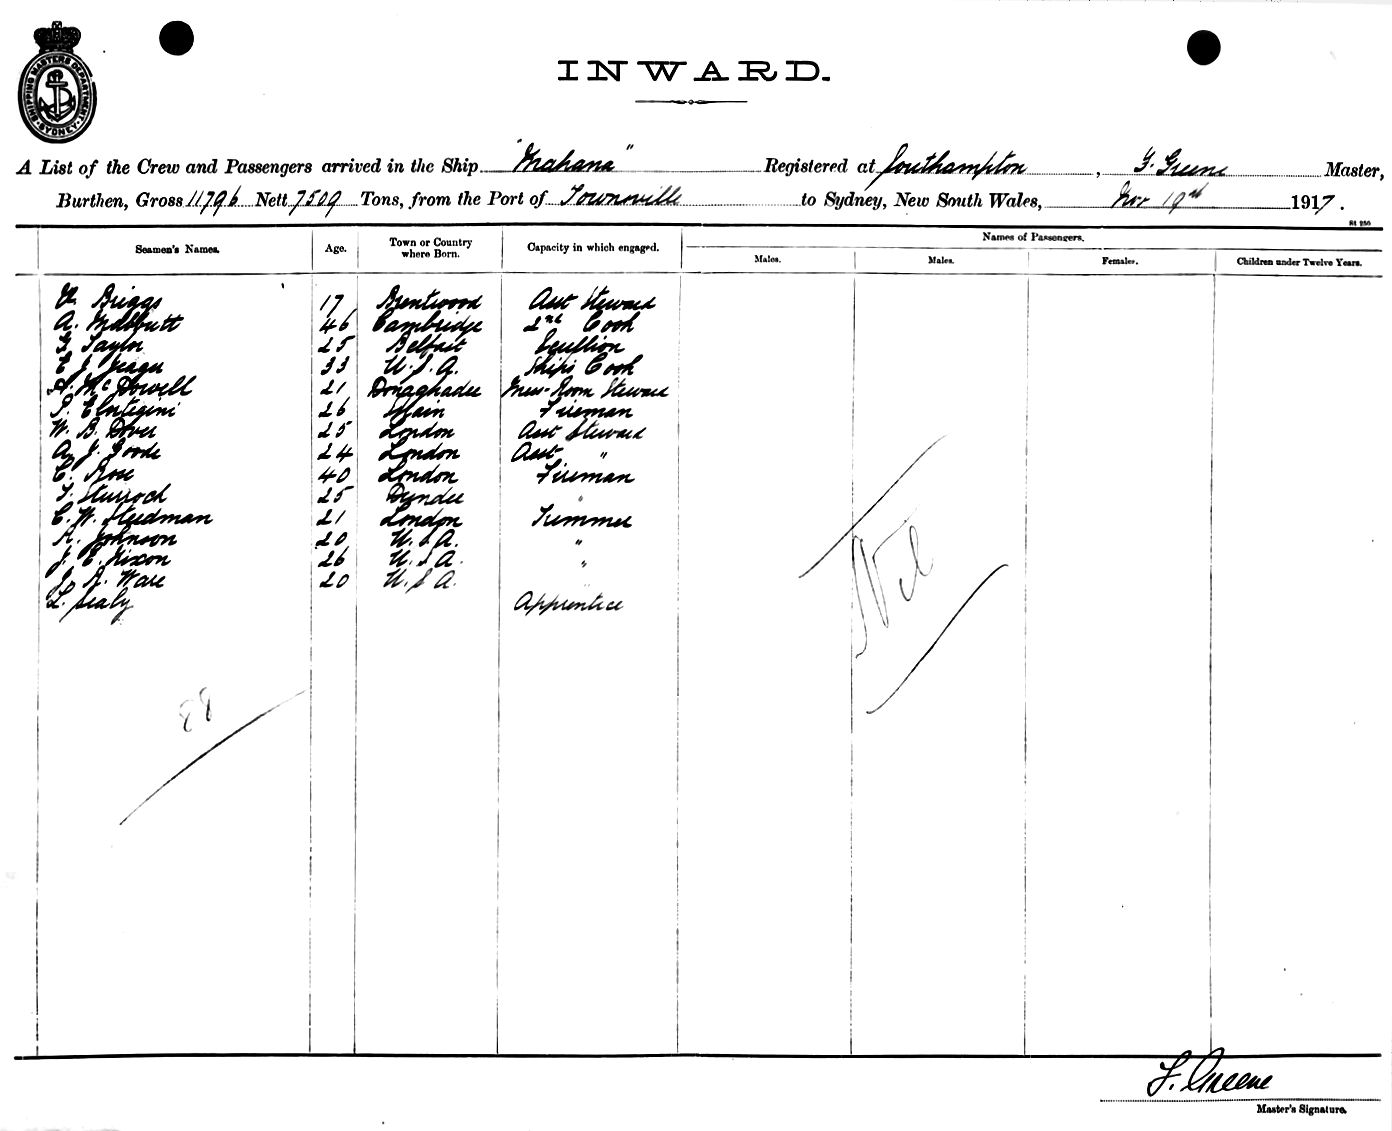 SHIPPING MASTERS DEPARTMENT
SYDNEY
INWARD.
A List of the Crew and Passengers arrived in the Ship "Mahana" Registered at Southampton, F. Greene Master,
Burthen, Gross 11796 Nett 7509 Tons, from the Port of Townsville to Sydney, New South Wales, Nov 19th 1917.
Seamen's Names. Age. Town or Country where Born. Capacity in which engaged. Names of Passengers.
Males. Males. Females. Children under Twelve Years.
Briggs 17 Brentwood Asst Steward
A. Mabbutt 46 Cambridge 2nd Cook
Taylor 25 Belfast Scullion
33 U.S.A. Ships Cook
McDowell 21 Donaghadee Mess-Room Steward
26 Spain Fireman
W. B. Dover 25 London Asst Steward
A. J. Goode 24 London Asst "
C. Rose 40 London Fireman
Sturroch 25 Dundee "
C. W. Steedman 21 London Trimmer
A. Johnson 20 U.S.A. "
J. E. Nixon 26 U.S.A. "
J. A. Ware 20 U.S.A.
L. Sealy Apprentice
Nil
88
F. Greene
Master's Signature.